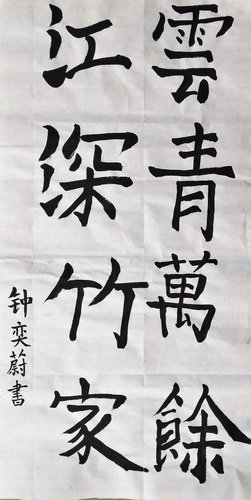 雲青萬餘
江深竹家
钟奕蔚書